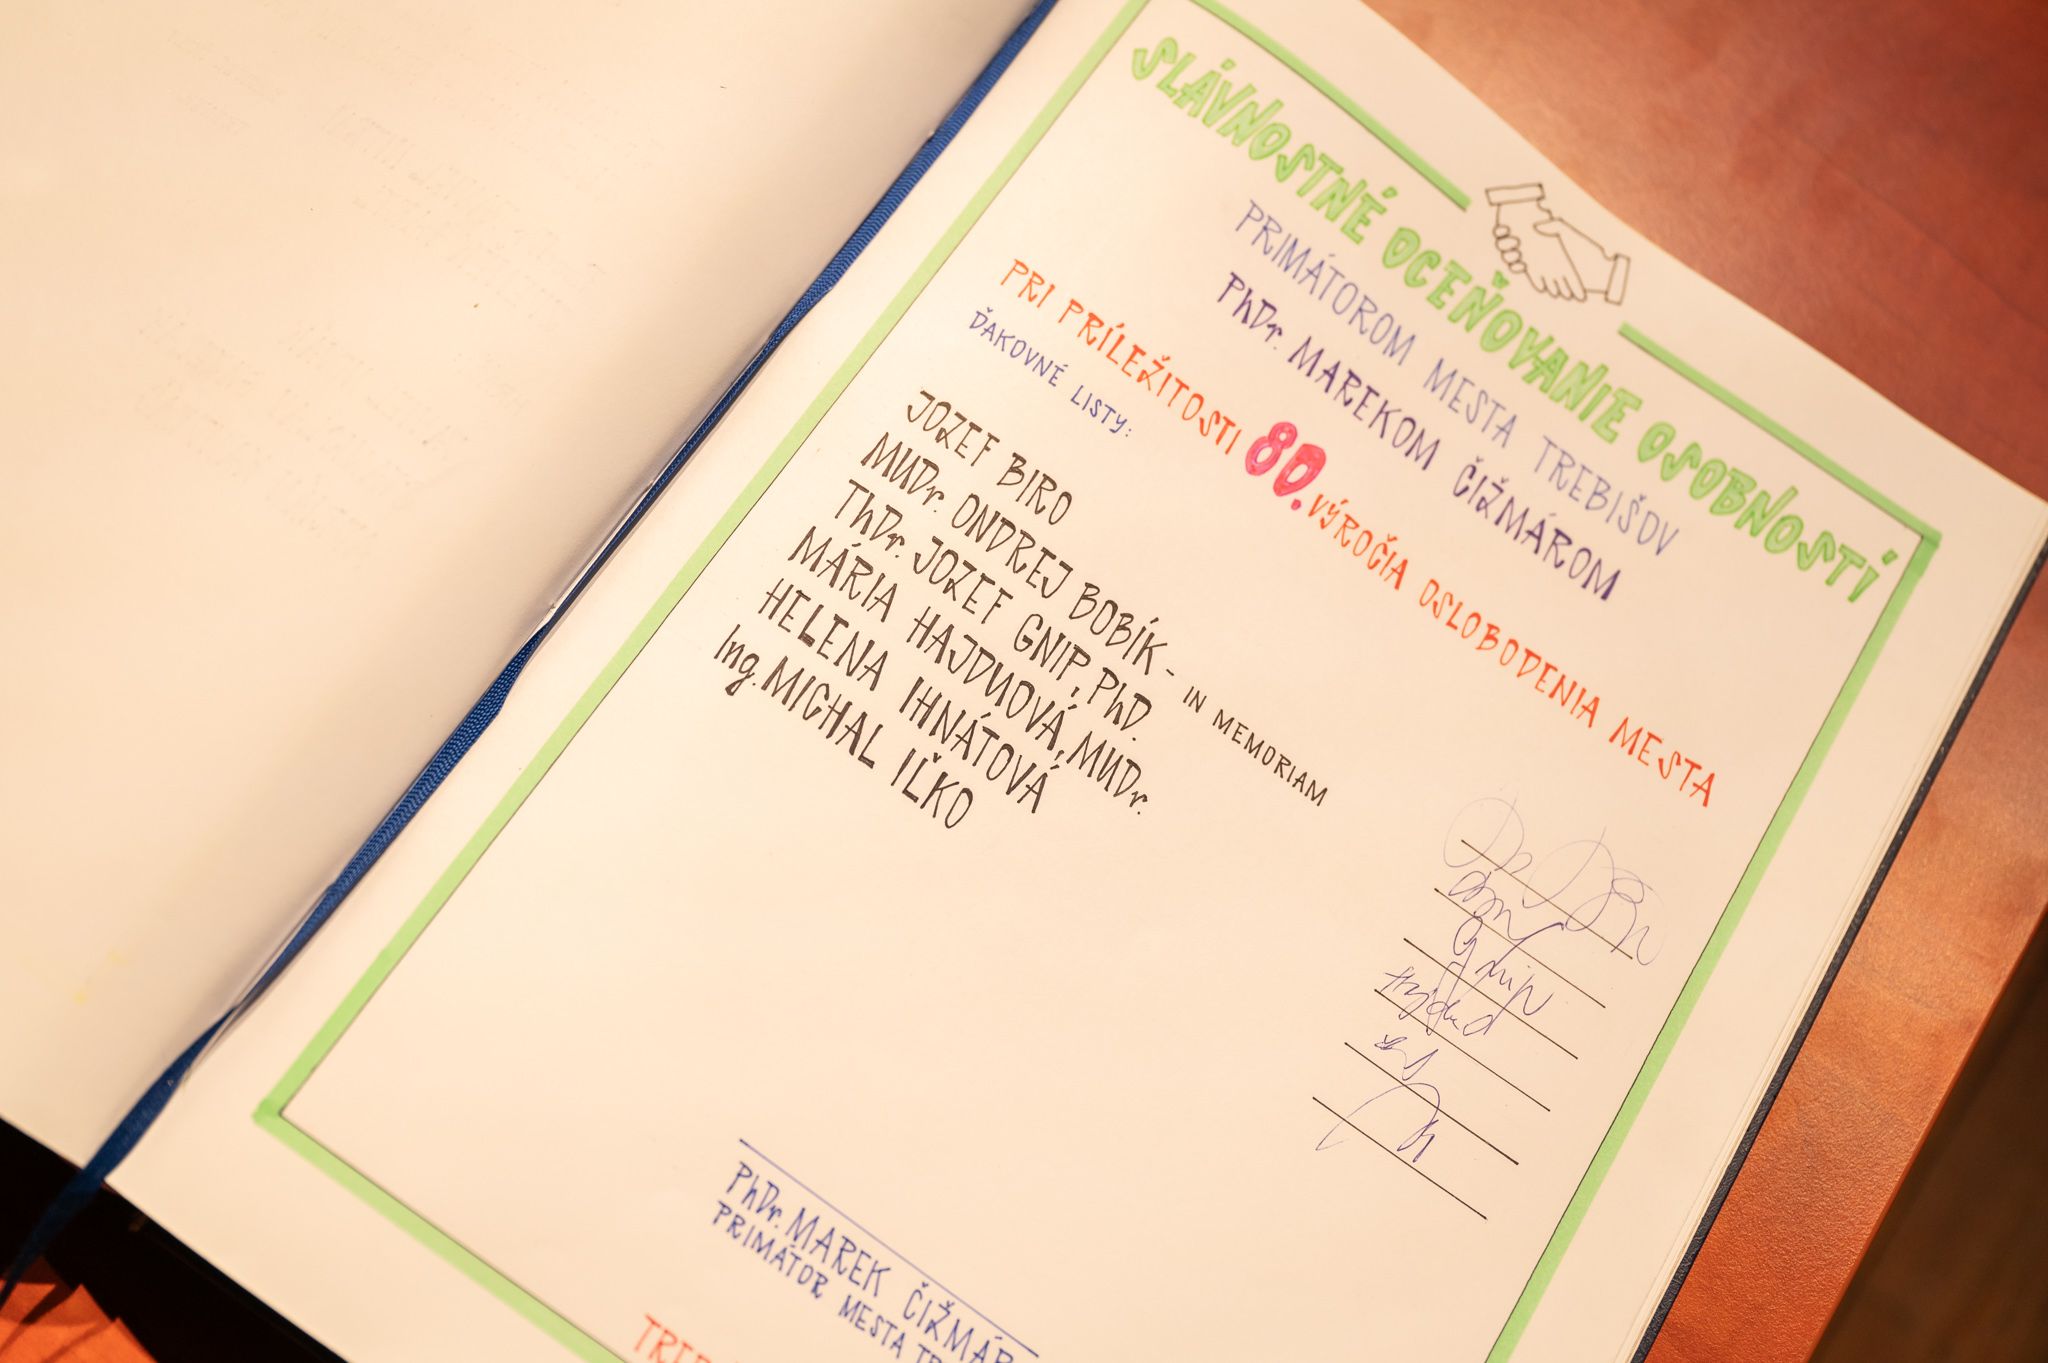 SLÁVNOSTNÉ OCEŇOVANIE OSOBNOSTÍ
PRIMÁTOROM MESTA TREBIŠOV
PhDr. MAREKOM ČIŽMÁROM
PRI PRÍLEŽITOSTI 80. VÝROČIA OSLOBODENIA MESTA
ĎAKOVNÉ LISTY:
JOZEF BIRO
MUDr. ONDREJ BOBÍK - IN MEMORIAM
ThDr. JOZEF GNIP, PhD.
MÁRIA HAJDUOVÁ, MUDr.
HELENA IHNÁTOVÁ
Ing. MICHAL IĽKO
Gnip
PhDr. MAREK ČIŽMÁR
PRIMÁTOR MESTA